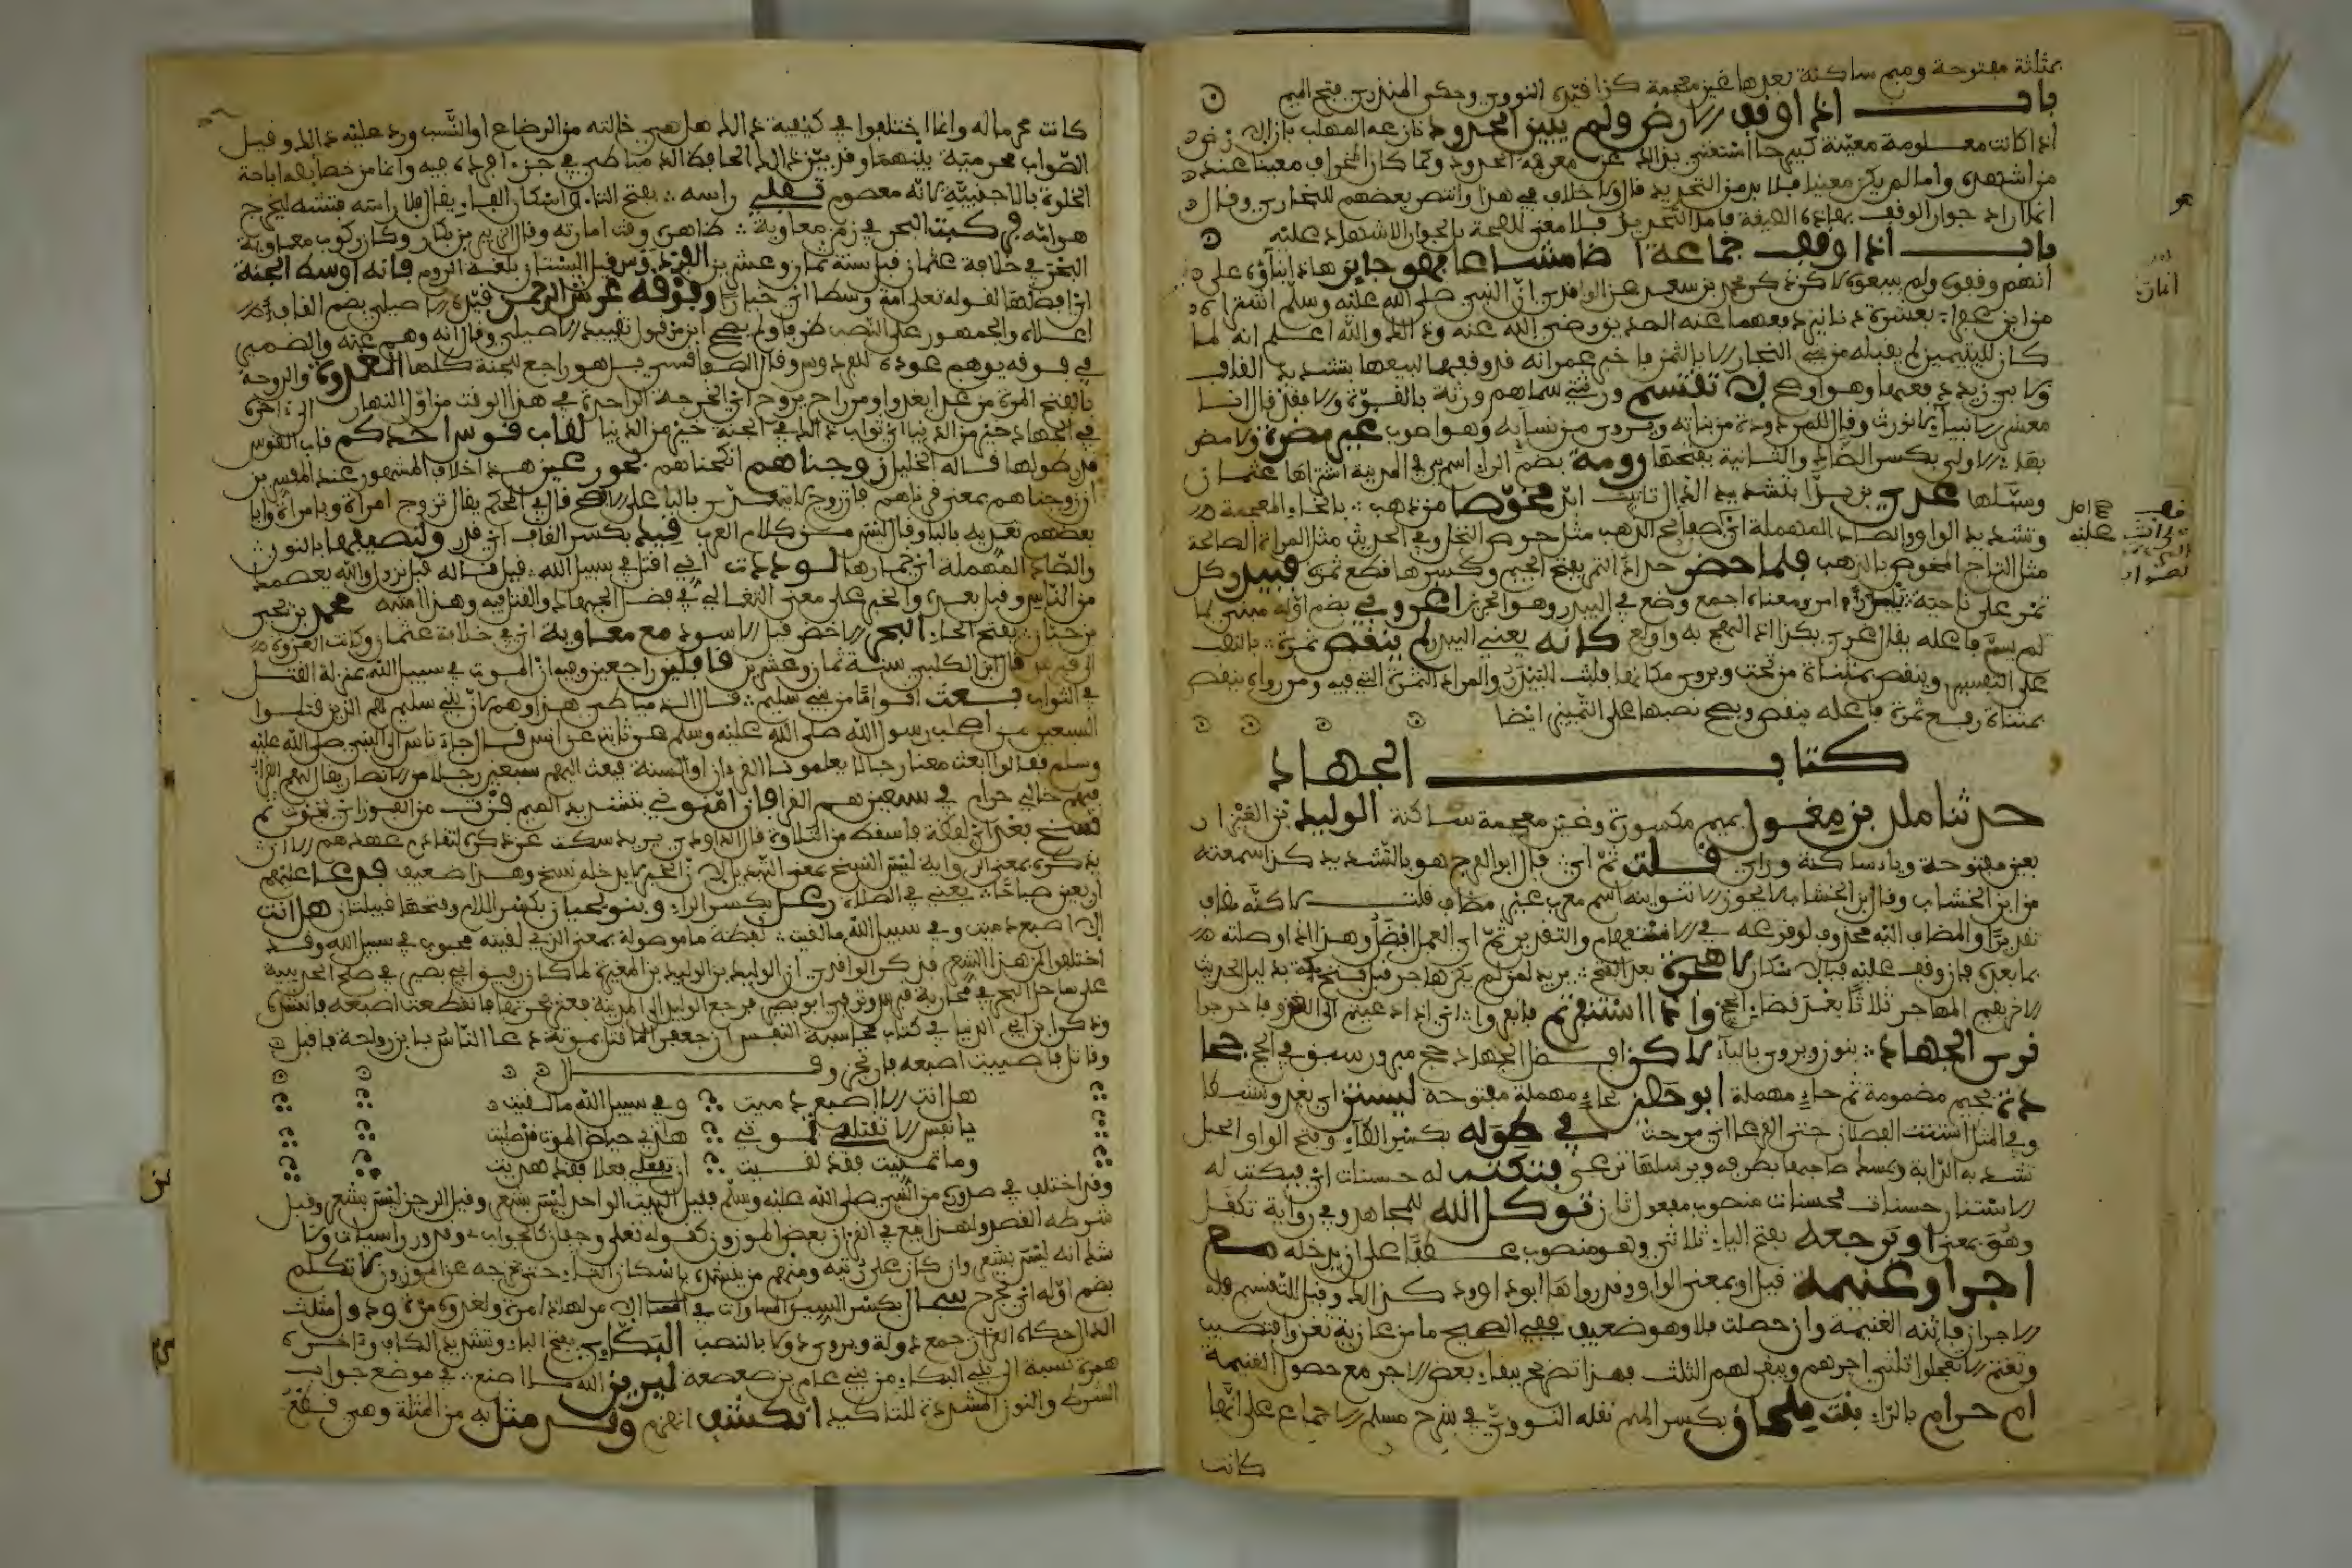 بمثلثة مفتوحة وميم ساكنة بعدها غين معجمة كذا قيده النووي وحكى المنذري فتح الميم
باب اذا اوقف ارضا ولم يبين الحدود نازعه المهلب بان الارض
اذا كانت معلومة معينة كبيرحا استغنى بذلك عن معرفة الحدود وكما كان المخراف معينا عند
من اشهده واما لم يكن معينا فلا بد من التحديد قال ولا خلاف في هذا وانتصر بعضهم للبخاري وقال
انما اراد جواز الوقف بهاذه الصيغة فاما التحديد فلا معنى للصحة بل لجواز الاشهاد عليه
باب اذا وقف جماعة ارضا مشاعا فهو جايز هاذا بناؤه على
انهم وقفوه ولم يبيعوه لاكن ذكر محمد بن سعد عن الواقدي ان النبي صلى الله عليه وسلم اشتراه
من ابن عفرا بعشرة دنانير دفعها عنه الصديق رضي الله عنه وذلك والله اعلم انه لما
كان لليتيمين لم يقبله من بني النجار الا بالثمن
ولابي زيد وهو اوجه لا تقتسم ورثتي سماهم ورثة بالقوة والا فقد قال انا
معشر الانبياء لا نورث وقال للمردودة من بناته ويروى من نسايه وهو اصوب غير مضرة ولا مضر
بها الاولى بكسر الضاد والثانية بفتحها رومة بضم الراء اسم بير في المدينة اشتراها عثمان
وسبلها عدي بن بدا بتشديد الدال تانيث ابد مخوصا من ذهب بالخاء المعجمة
وتشديد الواو والصاد المهملة اي صفايح الذهب مثل خوص النخل وفي الحديث مثل المراة الصالحة
مثل التاج المخوص بالذهب فلما حضر جداد التمر بفتح الجيم وكسرها قطع ثمره فبيدر وكل
تمر على ناحيته بيدر امر ومعناه اجمع وضع في البيدر وهو الجرين اغروا بي بضم اوله مبني لما
لم يسم فاعله يقال غري بكذا اذا لهج به واولع كانه يعني البيدر لم ينقص تمرة بالنصب
على التفسير وينقص بمثناة من تحت ويروى مكانها فلت للبيدر والمراد التمرة التي فيه ومن رواه ينقص
بمثناة رفع تمرة فاعله ينقص ويصح نصبها على التمييز ايضا
كتاب الجهاد
حدثنا مالك بن مغول بميم مكسورة وغين معجمة ساكنة الوليد بن العيزار
بعين مفتوحة وياء ساكنة وزاي قلت ثم اي قال ابو الفرج هو بالتشديد كذا سمعته
من ابن الخشاب وقال ابن الخشاب لا يجوز الا تنوينه اسم معرب غير مضاف قلت لاكنه مضاف
تقديرا والمضاف اليه محذوف لوقوعه في الاستفهام والتقدير ثم اي العمل افضل وهذا اذا وصلته
بما بعده فان وقف عليه فبالاسكان لا هجرة بعد الفتح يريد لمن لم يكن هاجر قبل فتح مكة بدليل الحديث
الاخر يقيم المهاجر ثلاثا بعد قضاء الحج واذا استنفرتم فانفروا اي اذا دعيتم الى الغزو فاخرجوا
نرى الجهاد بنون ويروى بالياء لاكن افضل الجهاد حج مبرور سبق في الحج جحا
دة بجيم مضمومة ثم حاء مهملة ابو حصين بحاء مهملة مفتوحة ليستن اي يعدو نشاطا
وفي المثل استنت الفصال حتى القرعى اي مرحت في طوله بكسر الطاء وفتح الواو الحبل
تشد به الدابة ويمسك صاحبها بطرفه ويرسلها ترعى فتكتب له حسنات اي فيكتب له
الاستنان حسنات فحسنات منصوب مفعول ثان توكل الله للمجاهد وفي رواية تكفل
وهو بمعنى او ترجعه بفتح الياء ثلاثي وهو منصوب عطفا على ان يدخله مع
اجر او غنيمة قيل او بمعنى الواو وقد رواها ابو داوود كذالك وقيل للتقسيم فله
الاجر ان فاتته الغنيمة وان حصلت فلا وهو ضعيف ففي الصحيح ما من غازية تغزوا فتصيب
وتغنم الا تعجلوا ثلثي اجرهم ويبقى لهم الثلث فهذا تصريح ببقاء بعض الاجر مع حصول الغنيمة
ام حرام بالراء بنت ملحان بكسر الميم نقله النووي في شرح مسلم الاجماع على انها
كانت
كانت محرما له وانما اختلفوا في كيفية ذالك هل هي خالته من الرضاع او النسب ورد عليه ذالك وقيل
الصواب لا محرمية بينهما وقد بين ذالك الحافظ الدمياطي في جزء افرده فيه وانما من خصايصه اباحة
الخلوة بالاجنبية لانه معصوم تفلي راسه بفتح التاء واسكان الفاء يقال فلا راسه فتشه ليخرج
هوامه في ركبت البحر في زمن معاوية ظاهره وقت امارته وقال الزبير بن بكار وكان ركوب معاوية
البحر في خلافة عثمان قيل سنة ثمان وعشرين الفردوس قيل البستان بلغة الروم فانه اوسط الجنة
اي افضلها لقوله تعلى امة وسطا اي خيارا وفوقه عرش الرحمن قيده الاصيلي بضم القاف اي
اعلاه والجمهور على النصب ظرفا ولم يصحح ابن قرقول تقييد الاصيلي وقال انه وهم عنه والضمير
في فوقه يوهم عوده للفردوس وقال الصفاقسي بل هو راجع للجنة كلها الغدوة والروحة
بالفتح المرة من غدا يغدوا ومن راح يروح اي الخرجة الواحدة في هذا الوقت من اول النهار الى اخره
في الجهاد خير من الدنيا اي ثواب ذالك في الجنة خير من الدنيا لقاب قوس احدكم قاب القوس
قدر طولها قاله الخليل زوجناهم انكحناهم بحور عين هذا خلاف المشهور عند المفسرين
ان زوجناهم بمعنى قرناهم فان زوج لا يتعدى بالباء على الافصح قال في المحكم يقال تزوج امراة وبامراة وابا
بعضهم تعديه بالباء وقال ليس من كلام العرب قيد بكسر القاف اي قدر ولنصيفها بالنون
والصاد المهملة اي خمارها لوددت اني اقتل في سبيل الله قيل قاله قبل نزول والله يعصمك
من الناس وقيل بعده والخبر على معنى التغالي في فضل الجهاد والقتل فيه وهذا اشبه محمد بن يحيى
بن حبان بفتح الحاء البحر الاخضر قيل الاسود مع معاوية اي في خلافة عثمان وكانت الغزوة
الى قبرس قال ابن الكلبي سنة ثمان وعشرين قافلين راجعين وفيه ان الموت في سبيل الله بمنزلة القتل
في الثواب بعث اقواما من بني سليم قال الدمياطي هذا وهم لان بني سليم هم الذين قتلوا
السبعين من اصحاب رسول الله صلى الله عليه وسلم هو ثابت عن انس قال جاء ناس الى النبي صلى الله عليه
وسلم فقالوا ابعث معنا رجالا يعلمونا القران والسنة فبعث اليهم سبعين رجلا من الانصار يقال لهم القراء
فيهم خالي حرام في سبعين هم القراء فان امنوني بتشديد الميم فزت من الفوز اي نجوت ثم
نسخ بعد اي لفظه فاسقط من التلاوة قال الداودي يريد سكت عن ذكره لتقادم عهدهم الا ان
يذكره بمعنى الرواية ليس النسخ بمعنى التبديل لان الخبر لا يدخله نسخ وهذا ضعيف فدعا عليهم
اربعين صباحا يعني في الصلاة رعل بكسر الراء وبنو لحيان بكسر اللام وفتحها قبيلتان هل انت
الا اصبع دميت وفي سبيل الله ما لقيت لفظة ما موصولة بمعنى الذي لقيته محبوب في سبيل الله وقد
اختلفوا لمن هذا الشعر فذكر الواقدي ان الوليد بن الوليد بن المغيرة لما كان رفيق ابي بصير في صلح الحديبية
على ساحل البحر في محاربة قريش وتوفي ابو بصير فرجع الوليد الى المدينة فعثر بحرتها فانقطعت اصبعه فانشده
وذكر ابن ابي الدنيا في كتاب محاسبة النفس ان جعفرا لما قتل بموتة دعا الناس يا ابن رواحة فاقبل
وقاتل فاصيبت اصبعه فارتجز وقال
هل انت الا اصبع دميت وفي سبيل الله ما لقيت
يا نفس الا تقتلي تموتي هاذي حياض الموت قد صليت
وما تمنيت فقد لقيت ان تفعلي فعلها فقد هديت
وقد اختلف في صدوره من النبي صلى الله عليه وسلم فقيل البيت الواحد ليس بشعر وقيل الرجز ليس بشعر وقيل
شرطه القصد ولهذا يقع في القران بعض الموزون كقوله تعلى وجفان كالجواب وقدور راسيات ولا
شك انه ليس بشعر وان كان على زنته ومنهم من ينشده باسكان التاء حتى يخرجه عن الموزون لا تكلم
بضم اوله اي يجرح سجال بكسر السين المساوات في الحال من لهاذا مرة ولهاذا مرة ودول مثلث
الدال حكاه القزاز جمع دولة ويروى دولا بالنصب البكاي بفتح الباء وتشديد الكاف واخره
همزة نسبة الى بني البكاء من بني عامر بن صعصعة ليرين الله ما اصنع في موضع جواب
الشرط والنون المشددة للتاكيد انكشف انهزم وقد مثل به من المثلة وهي قطع